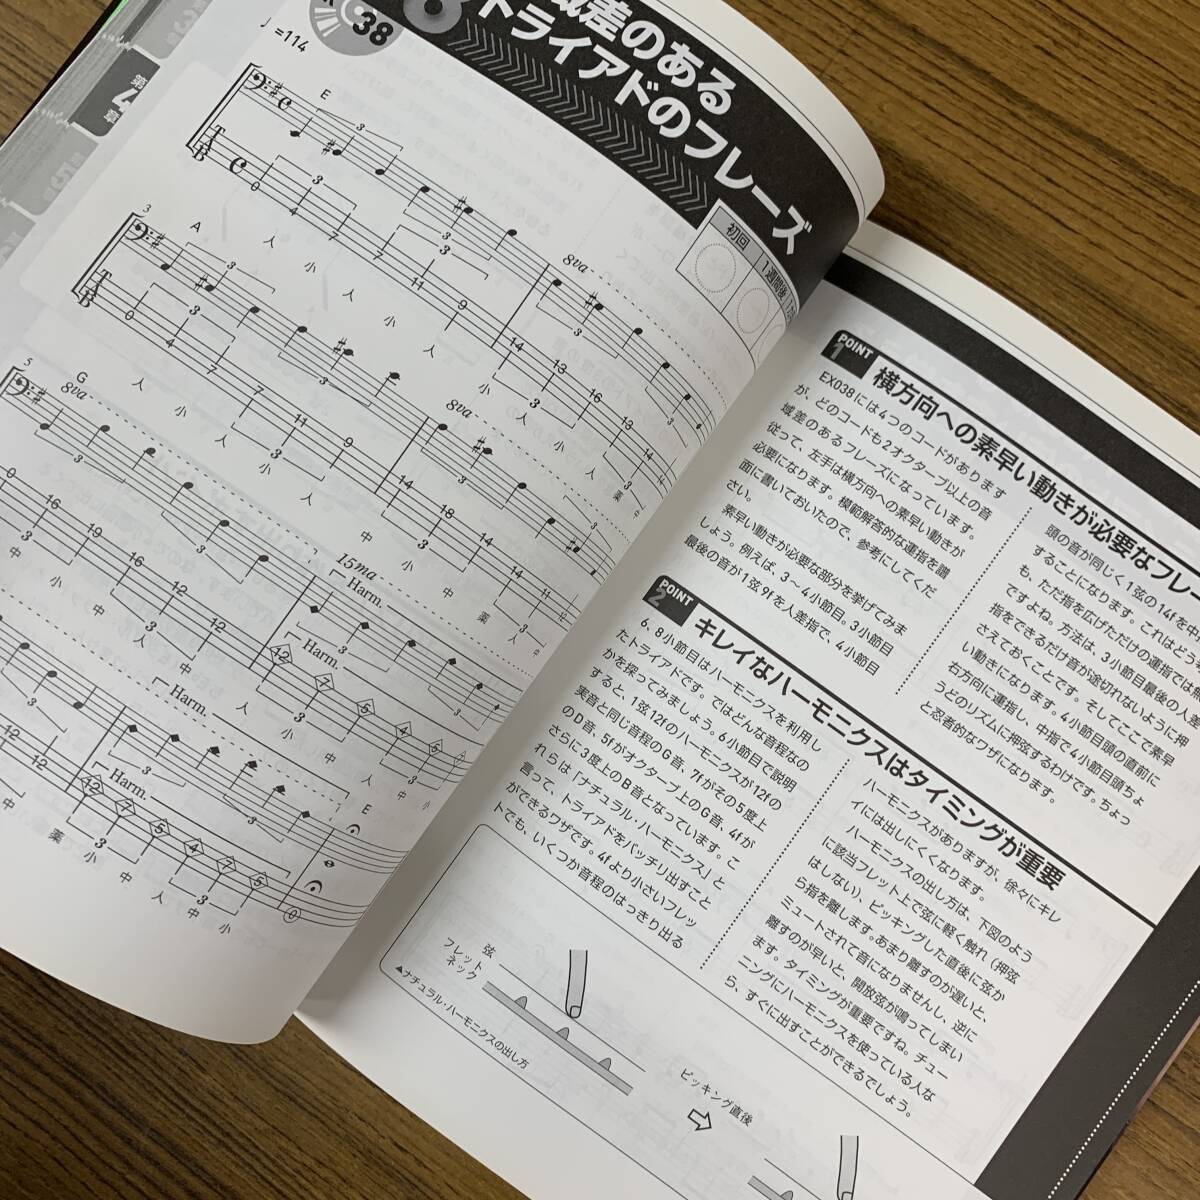 第
4
章
38
域差のある
トライアドのフレーズ
初回
1週間後
=114
E
3
3
8va
0 4 7 7 11 9 14 13 16 13
人 小 人 小 人
3
A
8va
0 4 7 7 11 9 14 18 14
人 小 人 小 小 人 薬 中
5
G
8va
15ma
Harm.
16 19 16 12 12
12 7 5 4 7 5
中 小 中 人 中 薬 人 中
Harm.
Harm.
E
12 12
12 7 5 4 7 5
薬 小 中 人 中 小
POINT
1
横方向への素早い動きが必要なフレー
EX038には4つのコードがあります
が、どのコードも2オクターブ以上の音
域差のあるフレーズになっています。
従って、左手は横方向への素早い動きが
必要になります。模範解答的な運指を譜
面に書いておいたので、参考にしてくだ
さい。
素早い動きが必要な部分を挙げてみま
しょう。例えば、3～4小節目。3小節目
最後の音が1弦9fを人差指で、4小節目
頭の音が同じく1弦の14fを中
することになります。これはどう
も、ただ指を広げただけの運指では無
ですよね。方法は、3小節目最後の人差
指をできるだけ音が途切れないように押
さえておくことです。そしてここで素早
い動きになります。4小節目頭の直前に
右方向に運指し、中指で4小節目頭ちょ
うどのリズムに押弦するわけです。ちょっ
と忍者的なワザになります。
POINT
2
キレイなハーモニクスはタイミングが重要
6、8小節目はハーモニクスを利用し
たトライアドです。ではどんな音程なの
かを探ってみましょう。6小節目で説明
すると、1弦12fのハーモニクスが12fの
実音と同じ音程のG音、7fがその5度上
のD音、5fがオクターブ上のG音、4fが
さらに3度上のB音となっています。こ
れらは「ナチュラル・ハーモニクス」と
言って、トライアドをバッチリ出すこと
ができるワザです。4fより小さいフレッ
トでも、いくつか音程のはっきり出る
ハーモニクスがありますが、徐々にキレ
イには出しにくくなります。
ハーモニクスの出し方は、下図のよう
に該当フレット上で弦に軽く触れ（押弦
はしない）、ピッキングした直後に弦か
ら指を離します。あまり離すのが遅いと、
ミュートされて音になりませんし、逆に
離すのが早いと、開放弦が鳴ってしまい
ます。タイミングが重要ですね。チュー
ニングにハーモニクスを使っている人な
ら、すぐに出すことができるでしょう。
弦
フレット
ネック
▲ナチュラル・ハーモニクスの出し方
ピッキング直後